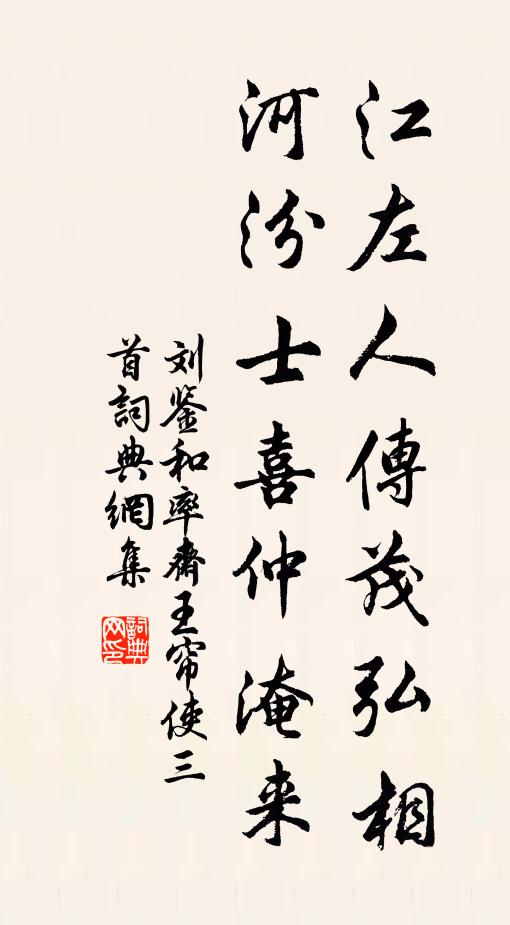 江左人傳茂弘相
河汾士喜仲淹来
刘鉴和率齋王帘使三
首詞典網集
詞典网印